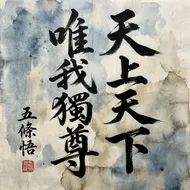 天上天下
唯我獨尊
五條悟